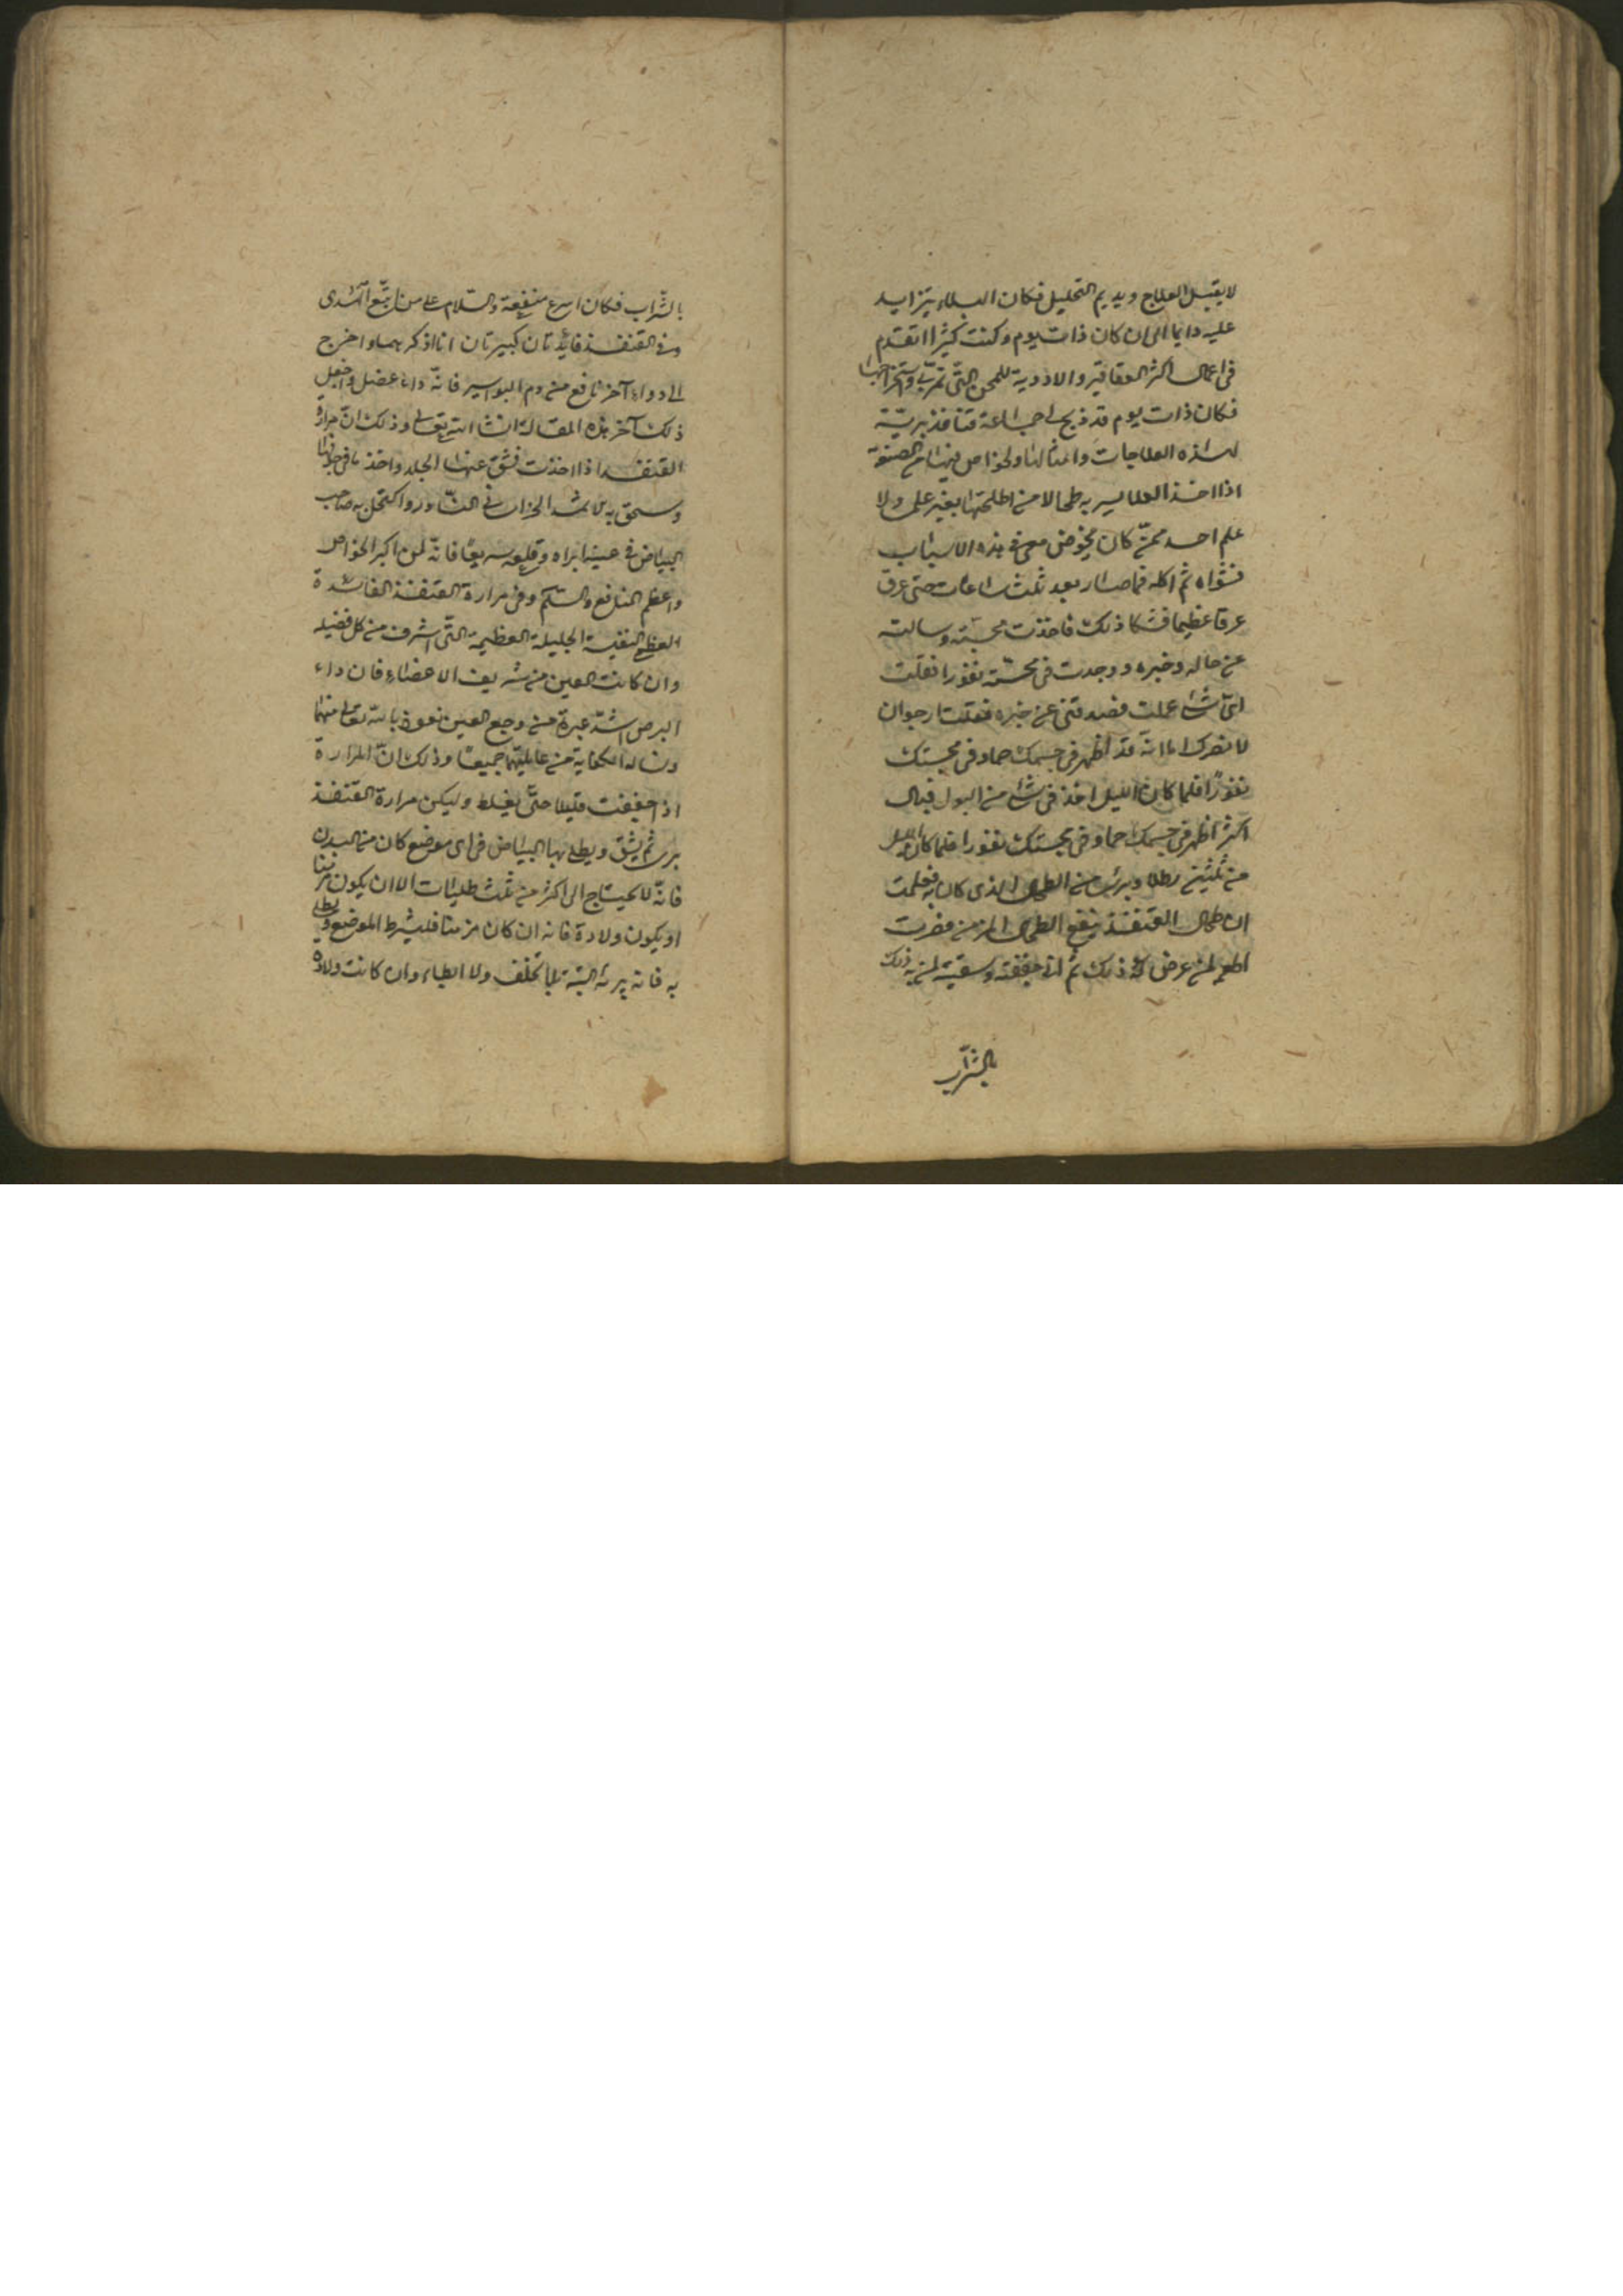 لا يقبل العلاج ويديم التحليل فكان البلاء يتزايد
عليه دايما الى ان كان ذات يوم وكنت كثيرا اتقدم
فى اعمال اكثر العقاقير والادوية للمحن التى تمرّ بى واستخراجها
فكان ذات يوم قد ذبح لى جماعة قنافذ بريّة
لهذه العلاجات وامثالها ولخواص فيها
اذا اخذ العلا يسر به طحالا من اطلحتها بغير علمى ولا
علم احد ممّن كان يخوض معى فى هذه الاسباب
فشواه ثم اكله فما صار بعد ثلث ساعات حتى عرق
عرقا عظيما فشكا ذلك فاخذت مجسّته وسالته
عن حاله وخبره ووجدت فى مجسّته نفورا فقلت
اىّ شئ عملت فصدقنى عن خبره فقلت ارجو ان
لا يضرك اما انّه قد اظهر فى جسمك حما وفى مجستك
نفورًا فلما كان الليل اخذ فى شئ من البول فبال
اكثر اظهر فى جسمك حما وفى مجستك نفورا فلما كان الليل
من ثلثين رطلا وبرئ من الطحال الذى كان به فعلمت
ان طحال القنفذ ينفع الطحال المزمن فصرت
اطعم لمن عرض له ذلك ثم انى جففته وسقيته لمن به ذلك
بالشراب
بالشراب فكان اسرع منفعة والسّلام على من اتّبع الهدى
وفى القنفذ فائدتان كبيرتان انا اذكرهما واخرج
الى دواء آخر نافع من دم البواسير فانّه داء عضل واجعل
ذلك آخر هذه المقالة انشا الله تعالى وذلك انّ مرارة
القنفذ اذا اخذت فشقّ عنها الجلد واخذ ما فى جوفها
وسحق به الاثمد الى ان فى واكتحل به صاحب
البياض فى عينه ابراه وقلعه سريعًا فانّه لمن اكبر الخواص
واعظم المنافع والسّلم وفى مرارة القنفذ الفائدة
العظمى النفيسة الجليلة العظيمة التّى اشرف من كل فضيله
وان كانت العين من شريف الاعضاء فان داء
البرص اشدّ عبرة من وجع العين نعوذ بالله تعالى منهما
ونساله الكفاية من غايلتهما جميعًا وذلك انّ المرارة
اذا جففت قليلا حتّى يغلظ وليكن مرارة القنفذ
برى ثم يشق ويطلى بها البياض فى اى موضع كان من البدن
فانّه لا يحتاج الى اكثر من ثلث طليات الا ان يكون مزمنا
او يكون ولادة فانه ان كان مزمنا فليشرط الموضع ويطلى
به فانه يبرئه البتة بلا تخلف ولا ابطاء وان كانت ولادة